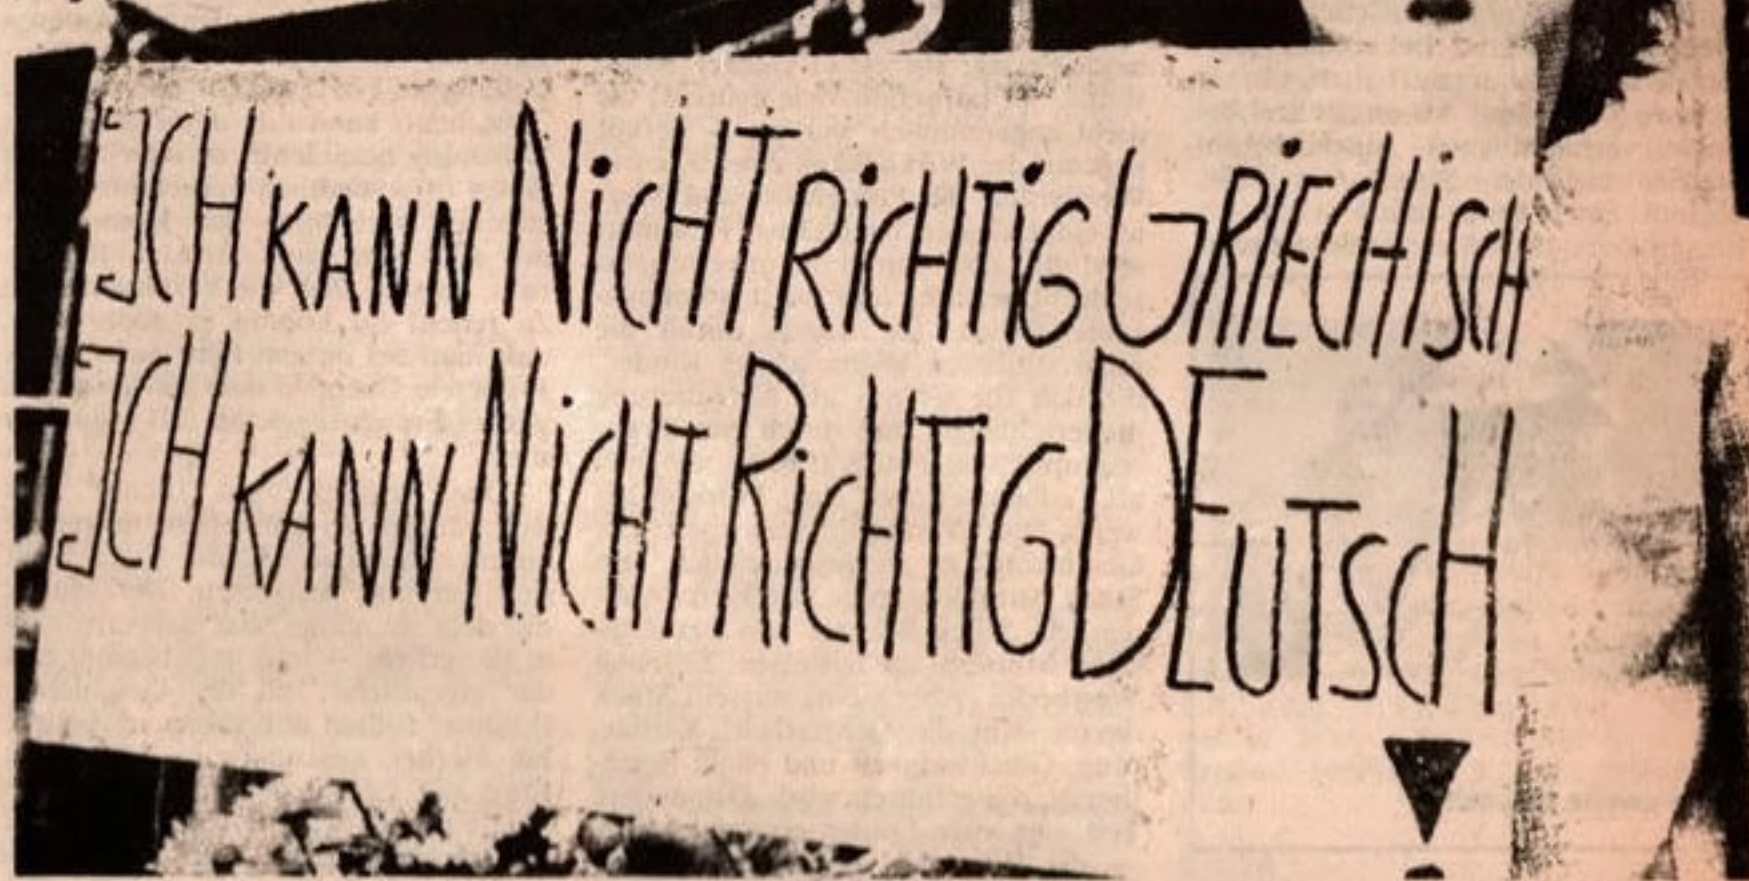 ICH KANN NiCHT RiCHTiG GRIECHISCH
ICH KANN NiCHT RiCHTIG DEUTSCH
!